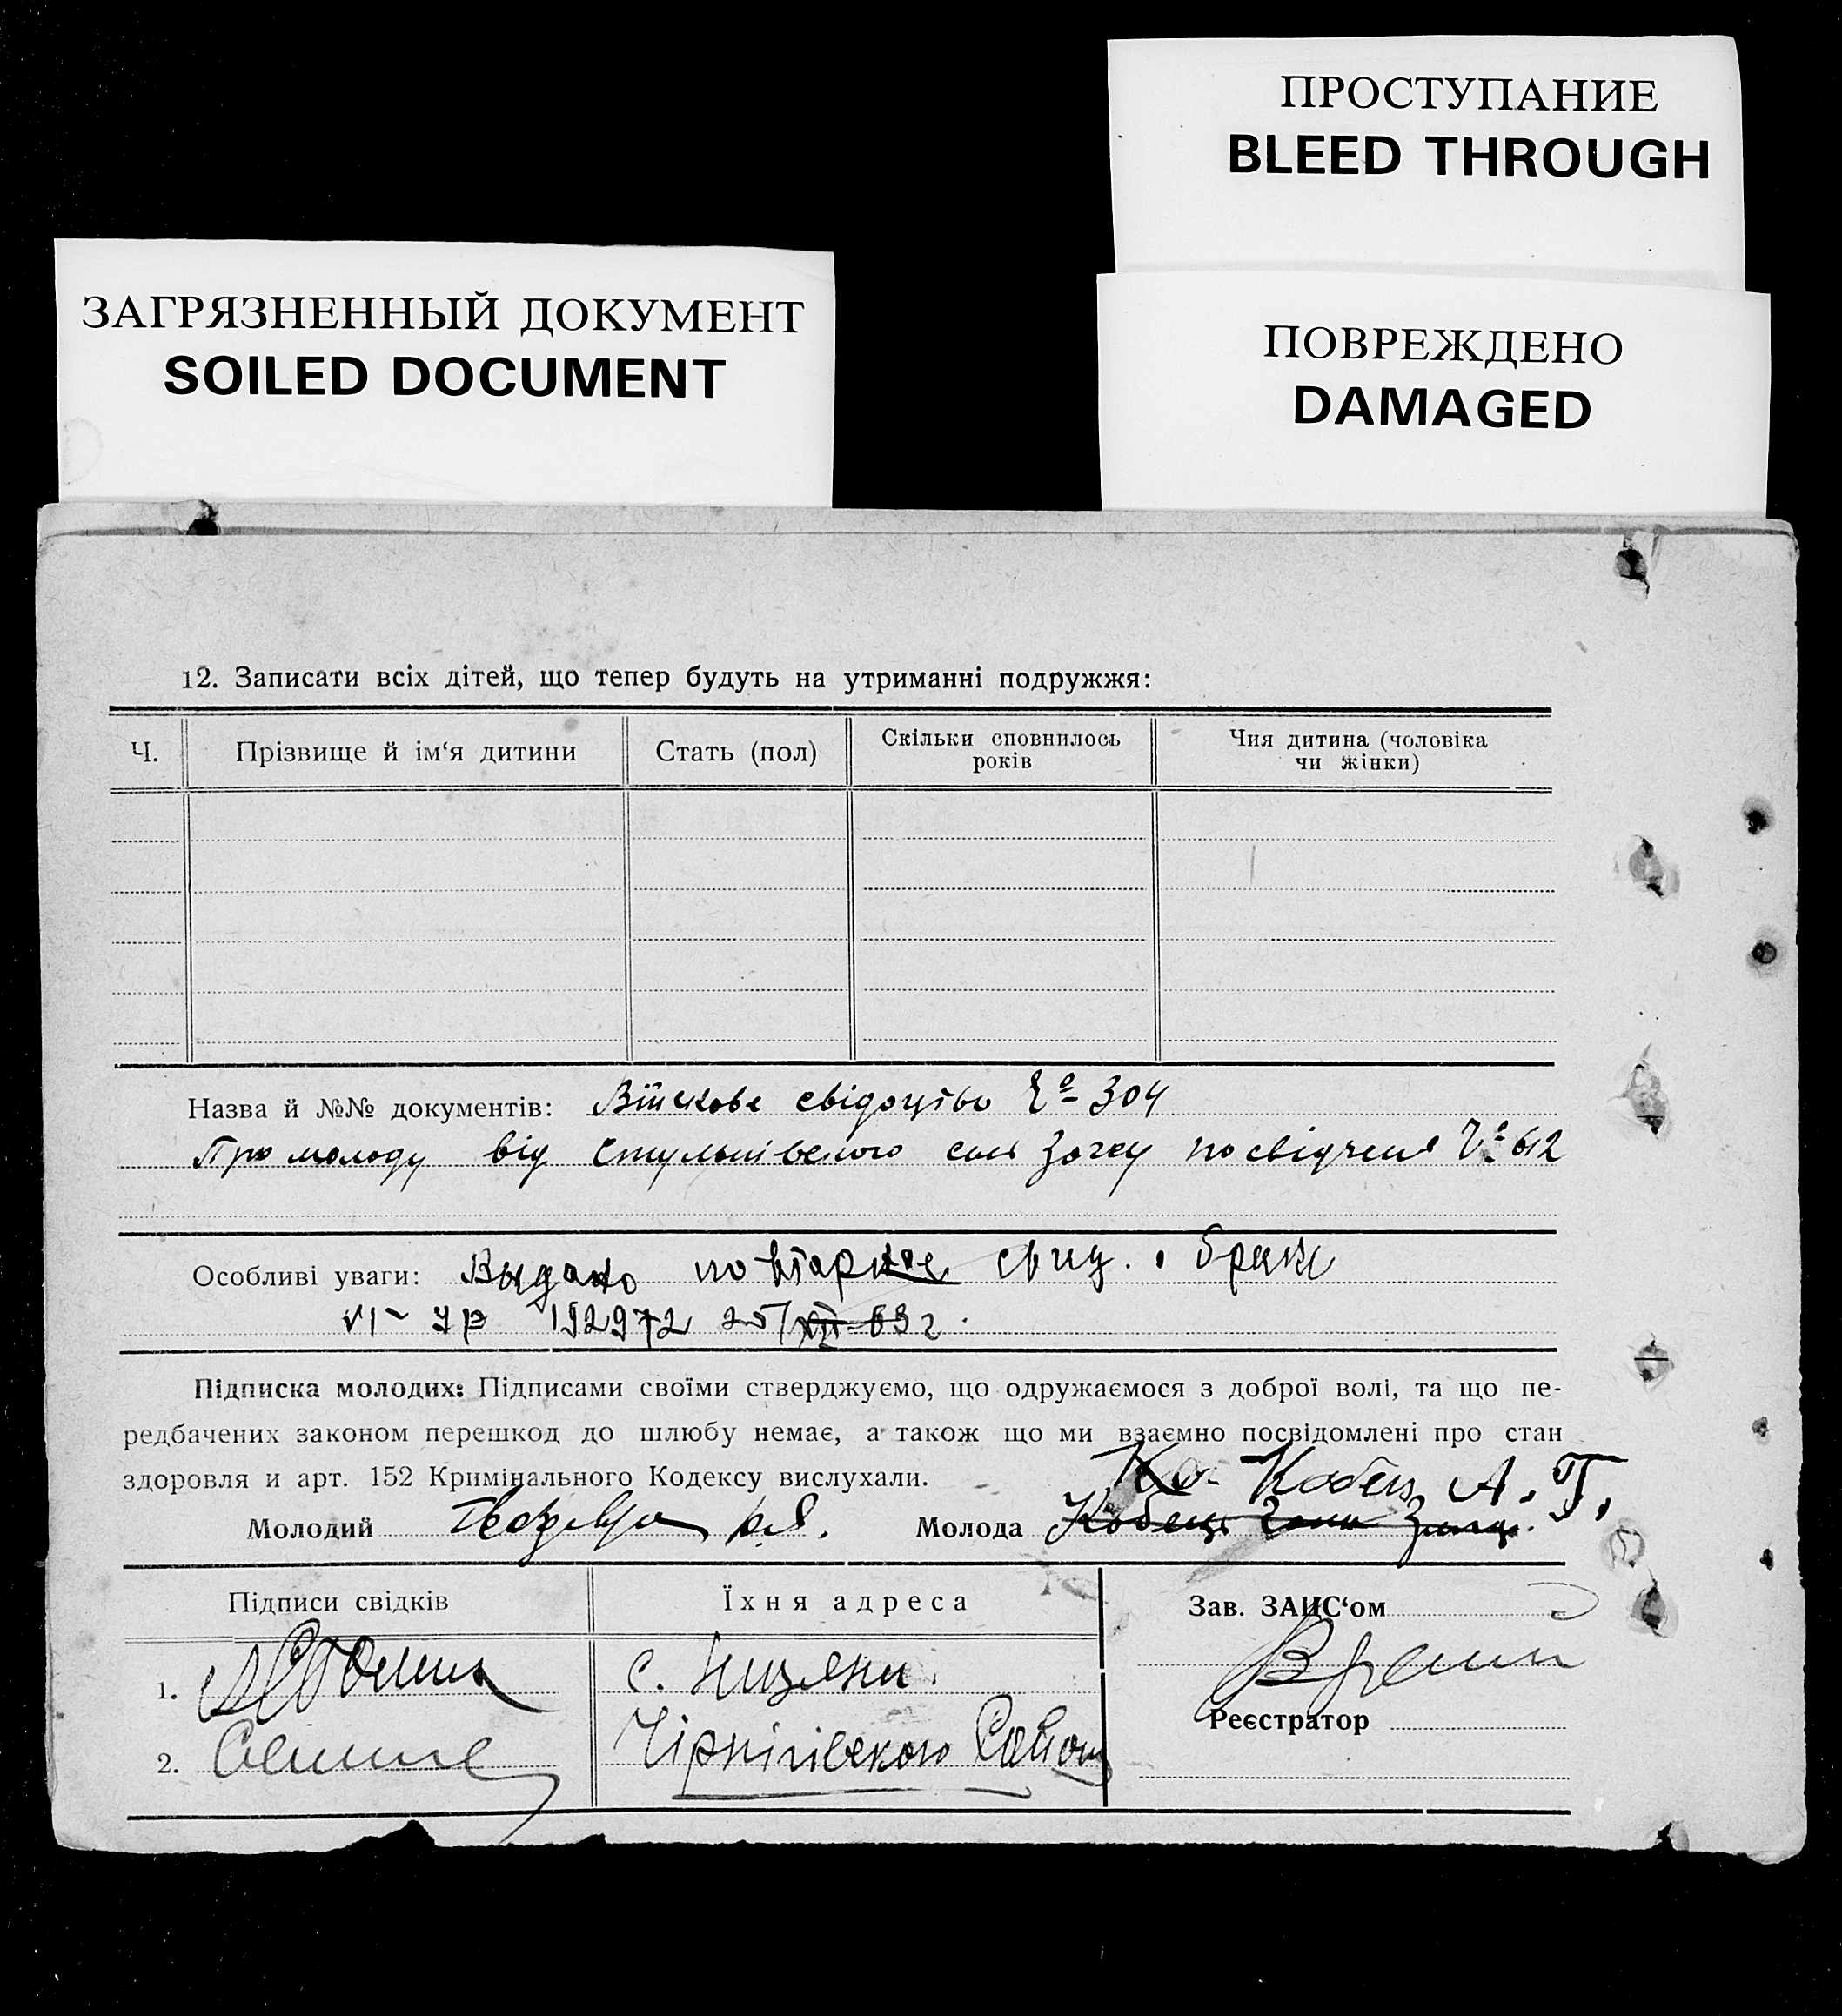 ПРОСТУПАНИЕ
BLEED THROUGH
ЗАГРЯЗНЕННЫЙ ДОКУМЕНТ
SOILED DOCUMENT
ПОВРЕЖДЕНО
DAMAGED
12. Записати всіх дітей, що тепер будуть на утриманні подружжя:
Ч.
Прізвище й ім‘я дитини
Стать (пол)
Скільки сповнилось
років
Чия дитина (чоловіка
чи жінки)
Назва й №№ документів: Військове свідоцтво № 304
Про молоду від посвідченя № 612
Особливі уваги: Выдано повторное свид. о браке
192972 25/XII-
Підписка молодих: Підписами своїми стверджуємо, що одружаємося з доброї волі, та що пе-
редбачених законом перешкод до шлюбу немає, а також що ми взаємно посвідомлені про стан
здоровля и арт. 152 Кримінального Кодексу вислухали.
Кобець А. Г.
Молодий
Молода Кобець
Підписи свідків
Їхня адреса
Зав. ЗАЦС‘ом
1.
с.
Реєстратор
2.
Чірнігівского Району